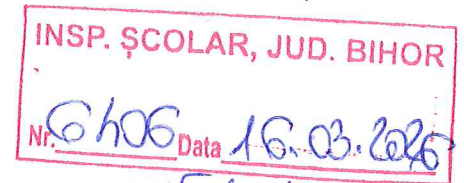 INSP. ȘCOLAR, JUD. BIHOR
Nr. 6406 Data 16.03.2026